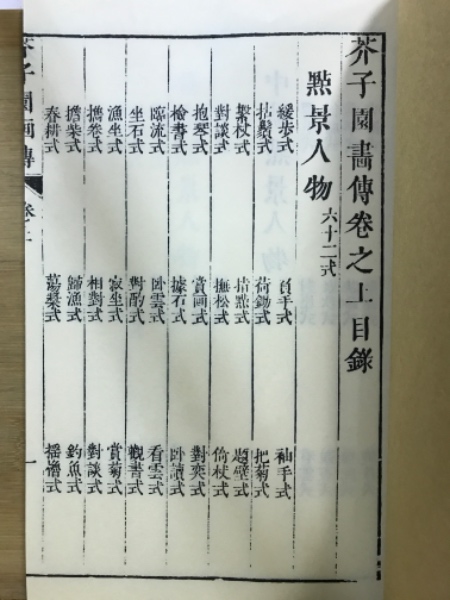 芥子園畫傳卷之上目錄
點景人物 六十二式
緩步式 負手式 袖手式
拈鬚式 荷鋤式 把菊式
繫杖式 指點式 題壁式
對談式 撫松式 倚杖式
抱琴式 賞画式 對奕式
檢書式 據石式 卧讀式
臨流式 卧雲式 看雲式
坐石式 對酌式 觀書式
漁坐式 寂坐式 賞菊式
攜卷式 相對式 對談式
擔柴式 歸漁式 釣魚式
春耕式 蕩槳式 搖櫓式
芥子園画傳 卷上 一